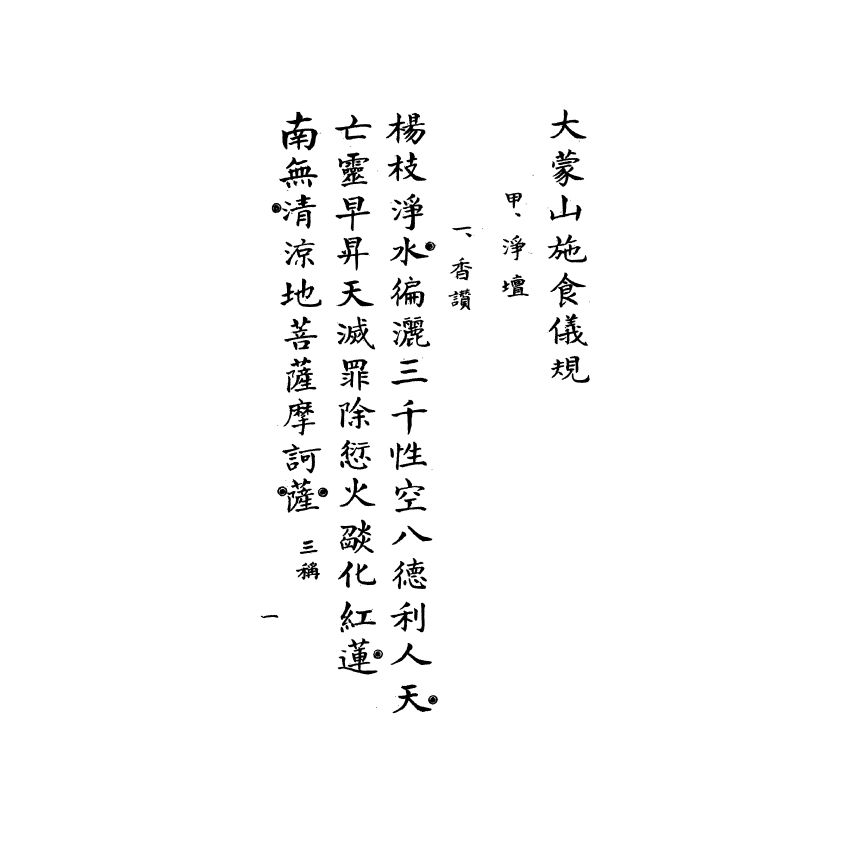 大蒙山施食儀規
甲、淨壇
一、香讚
楊枝淨水徧灑三千性空八德利人天
亡靈早昇天滅罪除愆火燄化紅蓮
南無清涼地菩薩摩訶薩 三稱
一